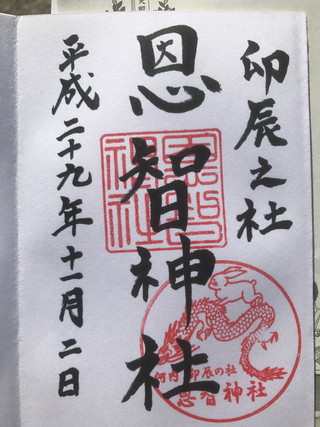 卯辰之社
恩智神社
平成二十九年十一月二日
恩智神社
河内 卯辰の社
恩智神社